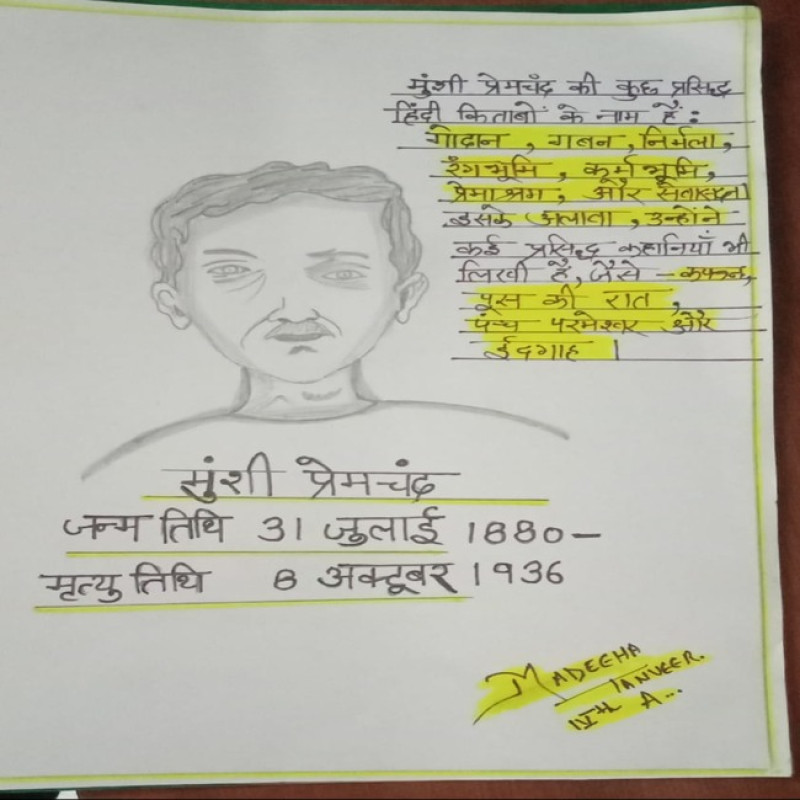 मुंशी प्रेमचंद की कुछ प्रसिद्ध
हिंदी किताबों के नाम हैं :
गोदान , गबन , निर्मला ,
रंगभूमि , कर्मभूमि ,
प्रेमाश्रम , और सेवासदन।
इसके अलावा , उन्होंने
कई प्रसिद्ध कहानियाँ भी
लिखी हैं , जैसे - कफन,
पूस की रात ,
पंच परमेश्वर और
ईदगाह ।
मुंशी प्रेमचंद
जन्म तिथि 31 जुलाई 1880 –
मृत्यु तिथि 8 अक्टूबर 1936
MADEEHA
TANVEER.
IVth A...